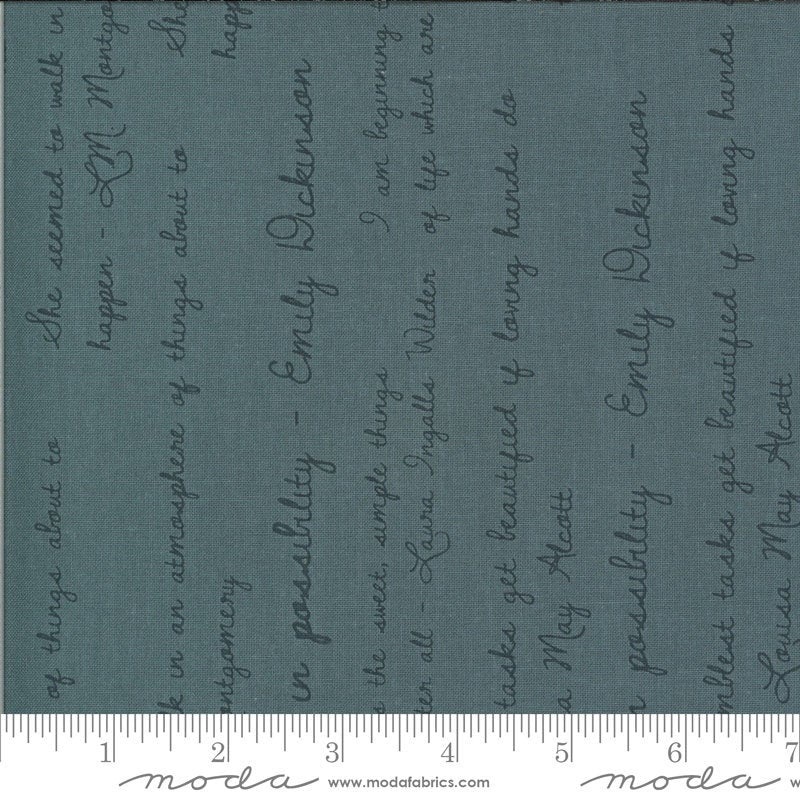 of things about to She seemed to walk in
happen - L.M. Montgo
k in an atmosphere of things about to She
ontgomery happ
in possibility - Emily Dickinson
s the sweet, simple things I am beginning
ter all - Laura Ingalls Wilder of life which are
tasks get beautified if loving hands do
a May Alcott
n possibility - Emily Dickinson
mblest tasks get beautified if loving hands
Louisa May Alcott
1 2 3 4 5 6 7
moda www.modafabrics.com moda w